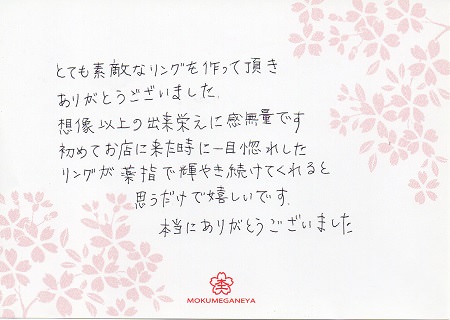 とても素敵なリングを作って頂き
ありがとうございました.
想像以上の出来栄えに感無量です
初めてお店に来た時に一目惚れした
リングが薬指で輝やき続けてくれると
思うだけで嬉しいです.
本当にありがとうございました
MOKUMEGANEYA